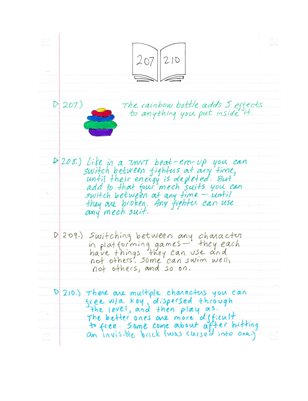 207 210
D 207.) The rainbow bottle adds 5 effects
to anything you put inside it.
D 208.) Like in a TMNT beat-em-up you can
switch between fighters at any time,
until their energy is depleted. But
add to that four mech suits you can
switch between at any time — until
they are broken. Any fighter can use
any mech suit.
D 209.) Switching between any character
in platforming games — they each
have things they can use and
not others. Some can swim well,
not others, and so on.
D 210.) There are multiple characters you can
free w/a key, dispersed through
the level, and then play as.
The better ones are more difficult
to free. Some come about after hitting
an invisible brick (was cursed into one.)